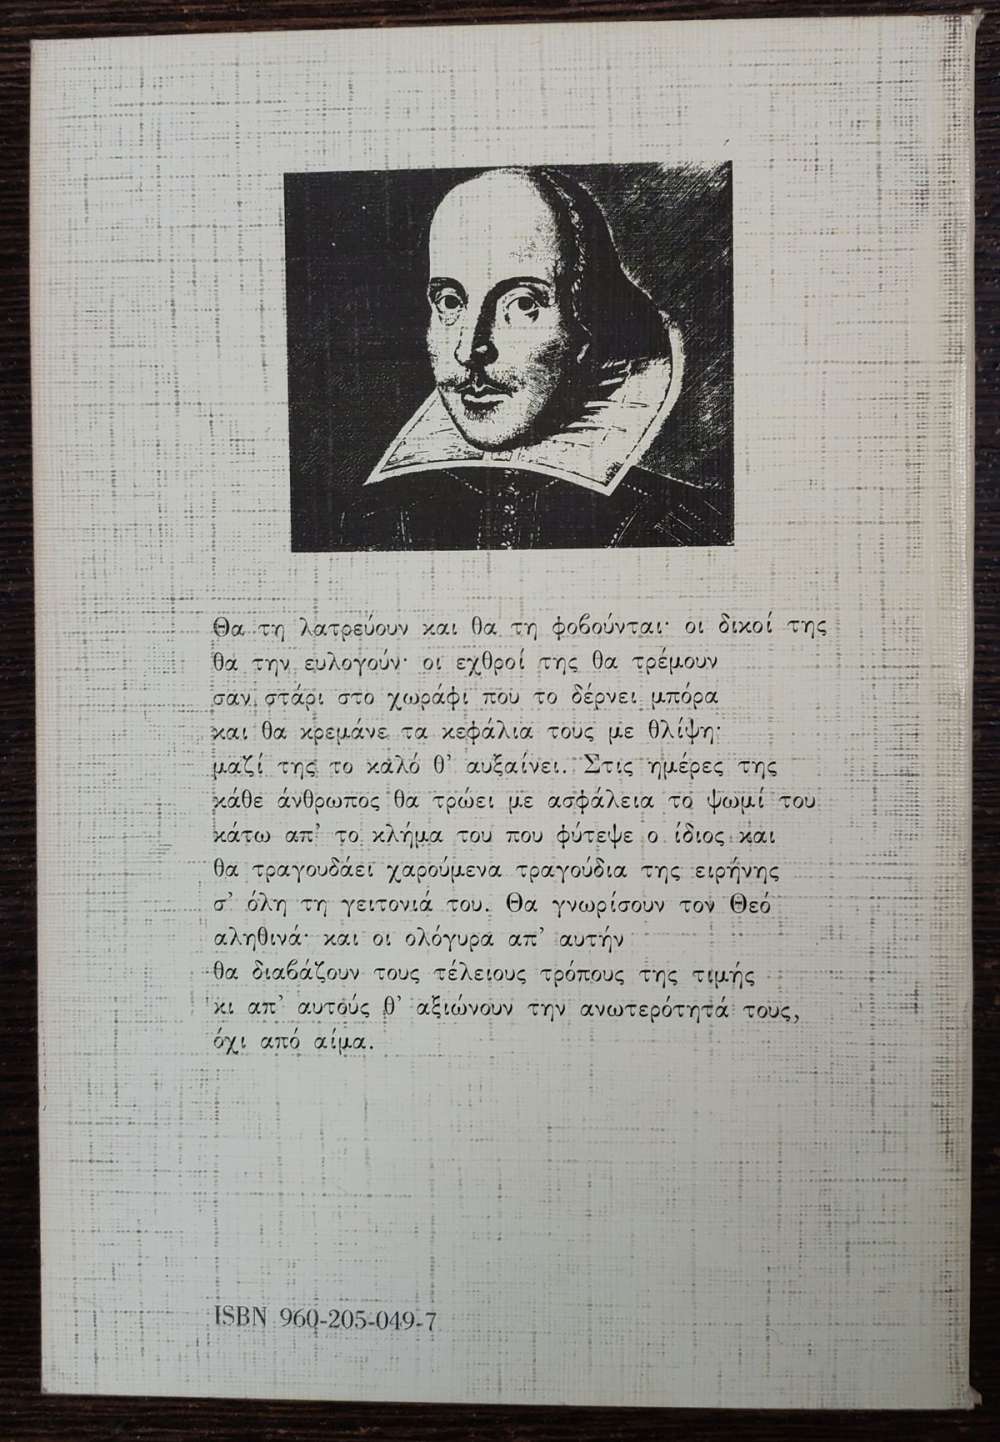 Θα τη λατρεύουν και θα τη φοβούνται· οι δικοί της
θα την ευλογούν· οι εχθροί της θα τρέμουν
σαν στάρι στο χωράφι που το δέρνει μπόρα
και θα κρεμάνε τα κεφάλια τους με θλίψη·
μαζί της το καλό θ' αυξαίνει. Στις ημέρες της
κάθε άνθρωπος θα τρώει με ασφάλεια το ψωμί του
κάτω απ' το κλήμα του που φύτεψε ο ίδιος και
θα τραγουδάει χαρούμενα τραγούδια της ειρήνης
σ' όλη τη γειτονιά του. Θα γνωρίσουν τον Θεό
αληθινά· και οι ολόγυρα απ' αυτήν
θα διαβάζουν τους τέλειους τρόπους της τιμής
κι απ' αυτούς θ' αξιώνουν την ανωτερότητά τους,
όχι από αίμα.
ISBN 960-205-049-7